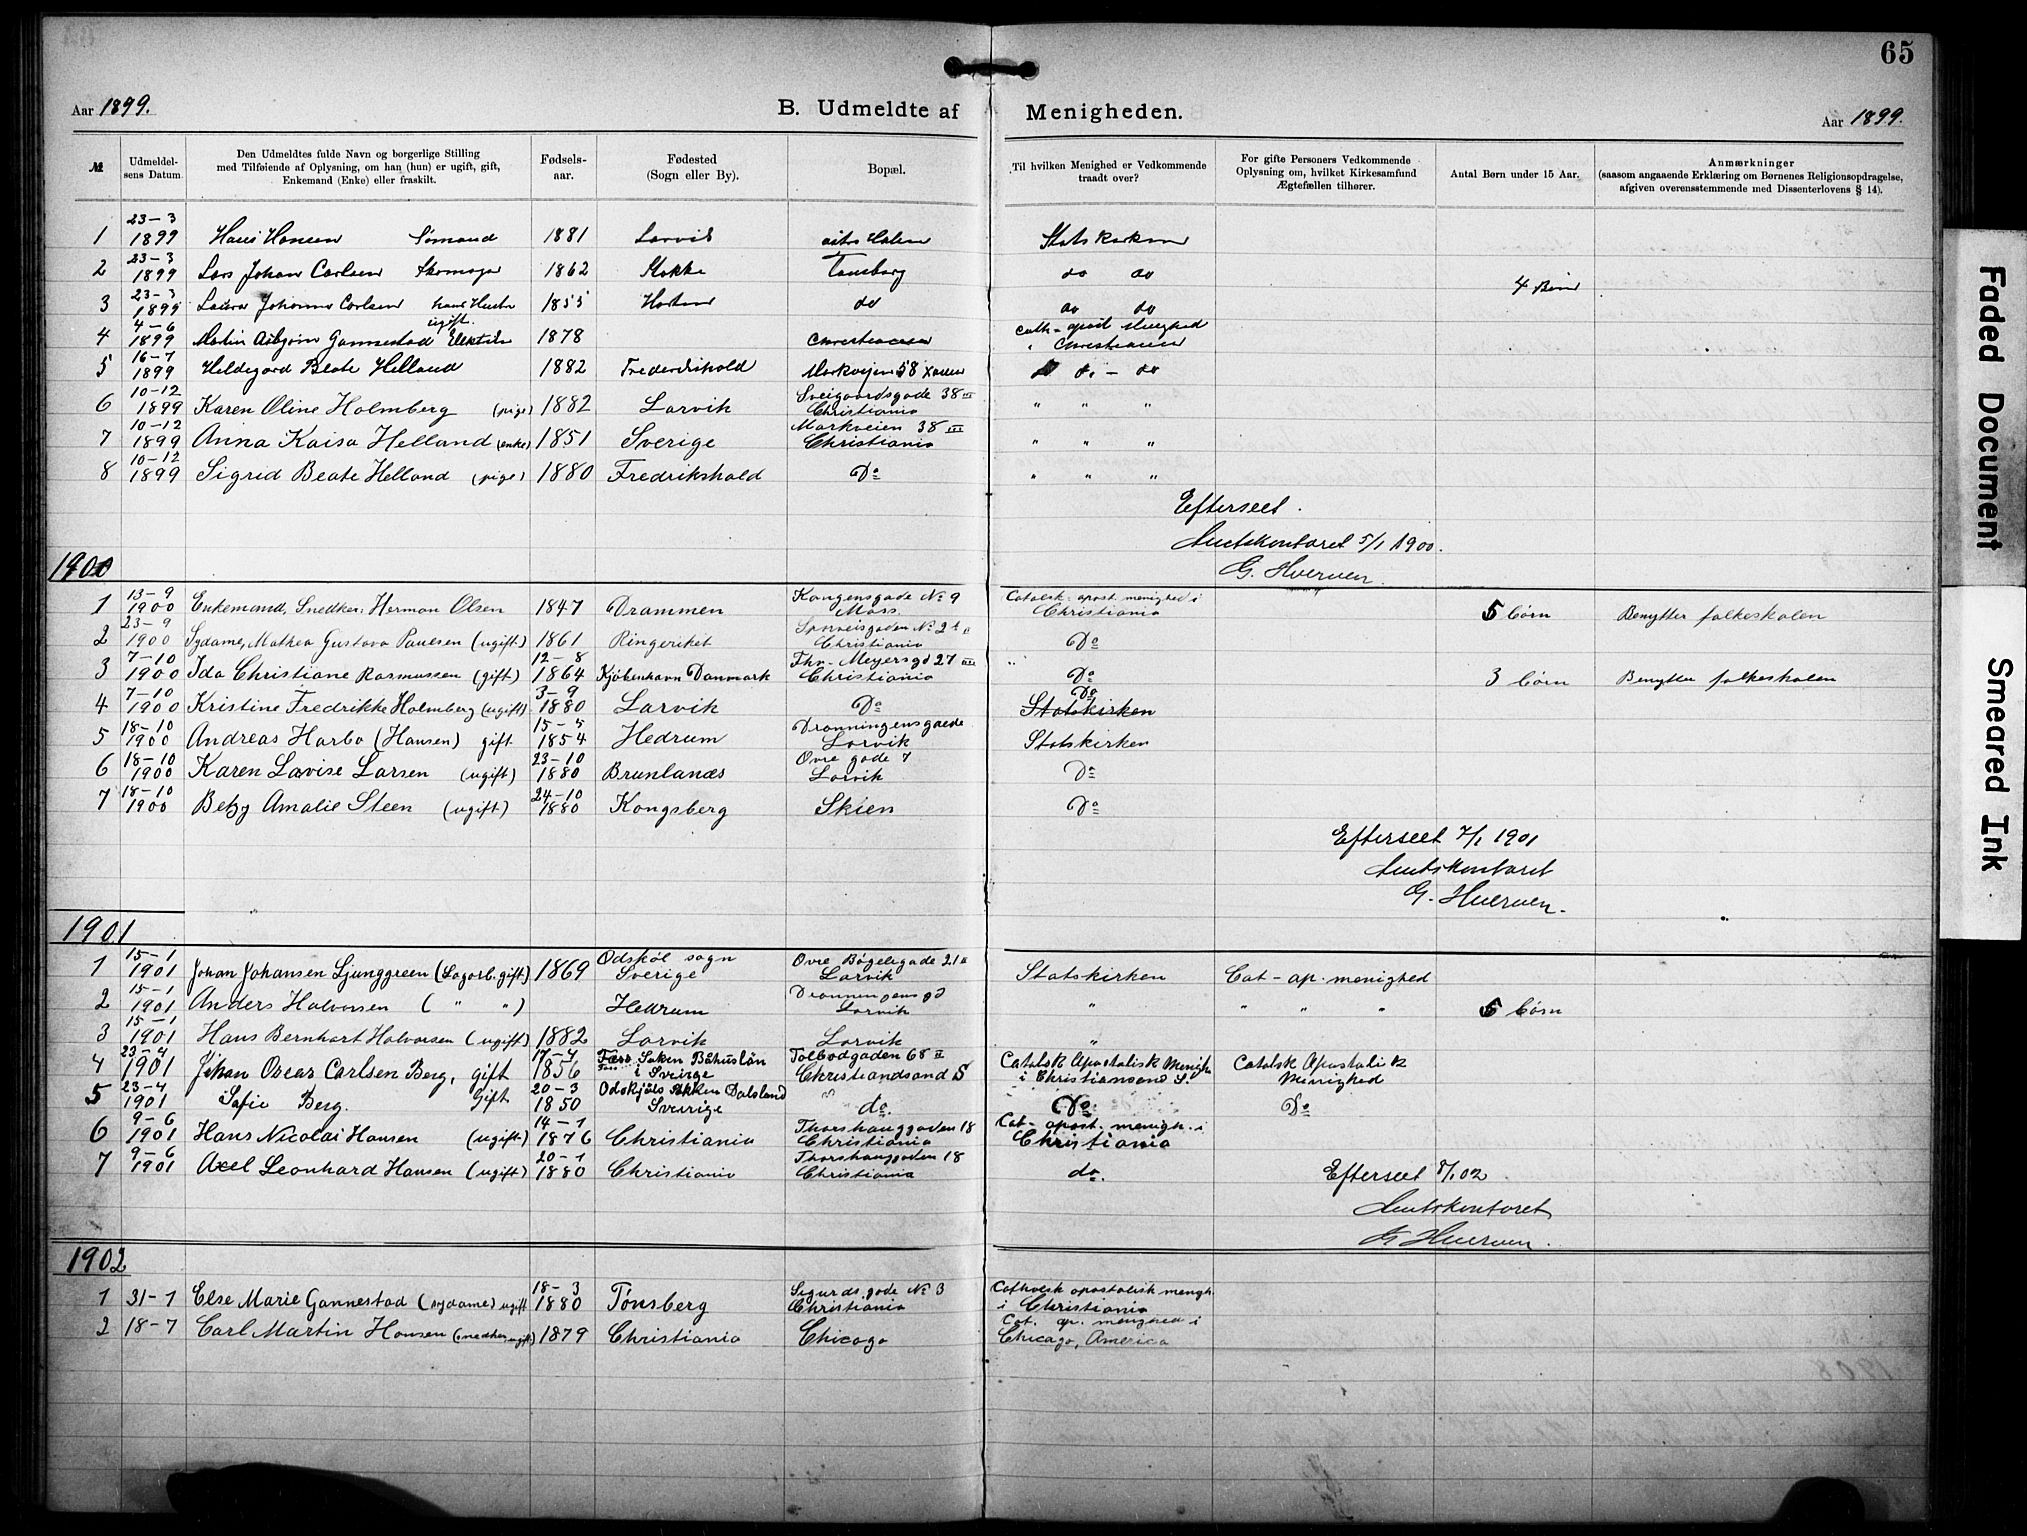 65
Aar 1899. B. Udmeldte af Menigheden. Aar 1899.
№ | Udmeldelsens Datum. | Den Udmeldtes fulde Navn og borgerlige Stilling med Tilføiende af Oplysning, om han (hun) er ugift, gift, Enkemand (Enke) eller fraskilt. | Fødselsaar. | Fødested (Sogn eller By). | Bopæl. | Til hvilken Menighed er Vedkommende traadt over? | For gifte Personers Vedkommende Oplysning om, hvilket Kirkesamfund Ægtefællen tilhører. | Antal Børn under 15 Aar. | Anmærkninger (saasom angaaende Erklæring om Børnenes Religionsopdragelse, afgiven overensstemmende med Dissenterlovens § 14).
1 23-3 1899 Hans Hansen Sømand 1881 Larvik Statskirken
2 23-3 1899 Lars Johan Carlsen Skomager 1862 Stokke Tønsberg do do
4 Børn
3 23-3 1899 Laura Johanne Carlsen hans Hustr 1855 Horten do do do
4 4-6 1899 Martin Asbjørn Gannestad ugift. 1878 Christiania Cath-apost Menighed i Christiania
5 16-7 1899 Hildegard Beate Helland 1882 Frederikshald Markveien 58 do - do
6 10-12 1899 Karen Oline Holmberg (pige) 1882 Larvik Sveigaardsgade 38 III Christiania " " "
7 10-12 1899 Anna Kaisa Helland (enke) 1851 Sverige Markveien 38 III Christiania " " "
8 10-12 1899 Sigrid Beate Helland (pige) 1880 Fredrikshald Do " " "
Efterseet.
Amtskontoret 5/1 1900.
G. Hverven.
1900
1 13-9 1900 Enkemand, Snedker: Herman Olsen 1847 Drammen Kongensgade No 9 Moss. Catolsk-apost. menighed i Christiania 5 børn Benytter folkeskolen
2 23-9 1900 Sydame, Mathea Gustava Paulsen (ugift) 1861 Ringeriket Christiania Do
3 7-10 1900 Ida Christiane Rasmussen (gift) 12-8 1864 Kjøbenhavn Danmark Thv. Meyersgd 27 III Christiania Do 3 børn Benytter folkeskolen
4 7-10 1900 Kristine Fredrikke Holmberg (ugift) 3-9 1880 Larvik Do Do Statskirken
5 18-10 1900 Andreas Harbo (Hansen) gift 15-5 1854 Hedrum Dronningensgaede Larvik Statskirken
6 18-10 1900 Karen Lovise Larsen (ugift) 23-10 1880 Brunlanæs Øvre gade 7 Larvik Do
7 18-10 1900 Betzy Amalie Steen (ugift) 24-10 1880 Kongsberg Skien Do
Efterseet 7/1 1901
Amtskontoret
G. Hverven.
1901
1 15-1 1901 Johan Johansen Ljunggreen (Sagarb. gift) 1869 Ødskøl sogn Sverige Øvre Bøgeligade 21 II Larvik Statskirken Cat-ap. menighed
2 15-1 1901 Anders Halvorsen ( " " ) Hedrum Dronningensgd Larvik " " " " 5 børn
3 15-1 1901 Hans Bernhart Halvorsen (ugift) 1882 Larvik Larvik "
4 23-4 1901 Johan Oscar Carlsen Berg, gift 17-7 1856 Soken Båhuslän i Sverige Tolbodgaden 68 II Christiandsand S Catolsk Apostolisk Menigh i Christiansand S. Catolsk Apostolisk Menighed
5 23-4 1901 Sofie Berg. Gift 20-3 1850 Ødskjøls Sokken Dalsland Sverige do. Do Do
6 9-6 1901 Hans Nicolai Hansen (ugift) 14-1 1876 Christiania Thorshauggaden 18 Christiania Cat-apost. menigh. i Christiania
7 9-6 1901 Axel Leonhard Hansen (ugift) 20-1 1880 Christiania Thorshauggaden 18 Christiania do.
Efterseet 8/1 02
Amtskontoret
G Hverven.
1902
1 31-1 Else Marie Gannestad (sydame) ugift 18-3 1880 Tønsberg Sigurds. gade No 3 Christiania Catholsk apostolisk menigh. i Christiania
2 18-7 Carl Martin Hansen (snedker, ugift) 1879 Christiania Chicago Cat. ap. menighed i Chicago, America
Faded Document
Smeared Ink